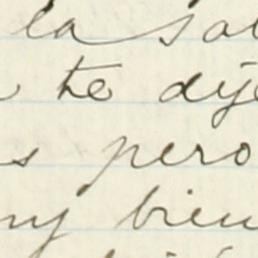 la sa
te dije
s pero
ny bien